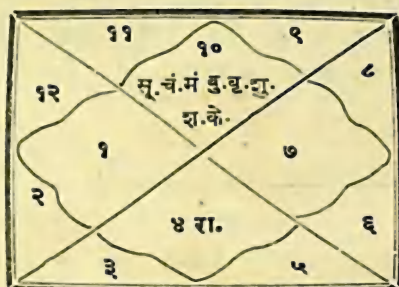 ११ १० ९
१२ सू.चं.मं बु.वृ.शु. ८
श.के.
१ ७
२ ४ रा. ६
३ ५